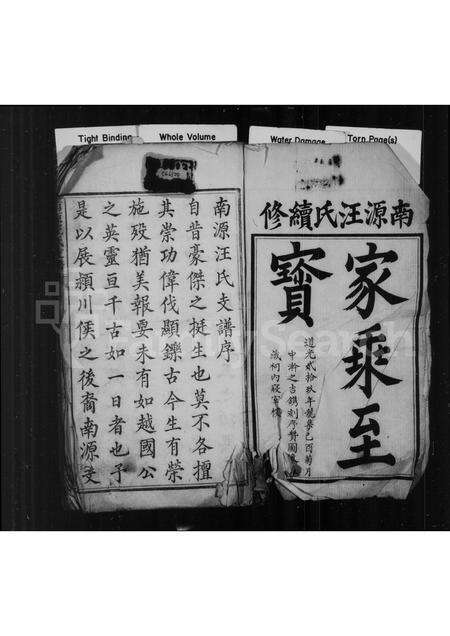 Tight Binding
Whole Volume
Water Damage
Torn Page(s)
南源汪氏續修
家乘至
寶
道光貳拾玖年歲
己酉菊月
中澣之吉鐫
藏祠內
南源汪氏支譜序
自昔豪傑之挺生也莫不各擅
其崇功偉伐顯鑠古今生有榮
施歿猶美報要未有如越國公
之英靈亘千古如一日者也予
是以展潁川侯之後裔南源支